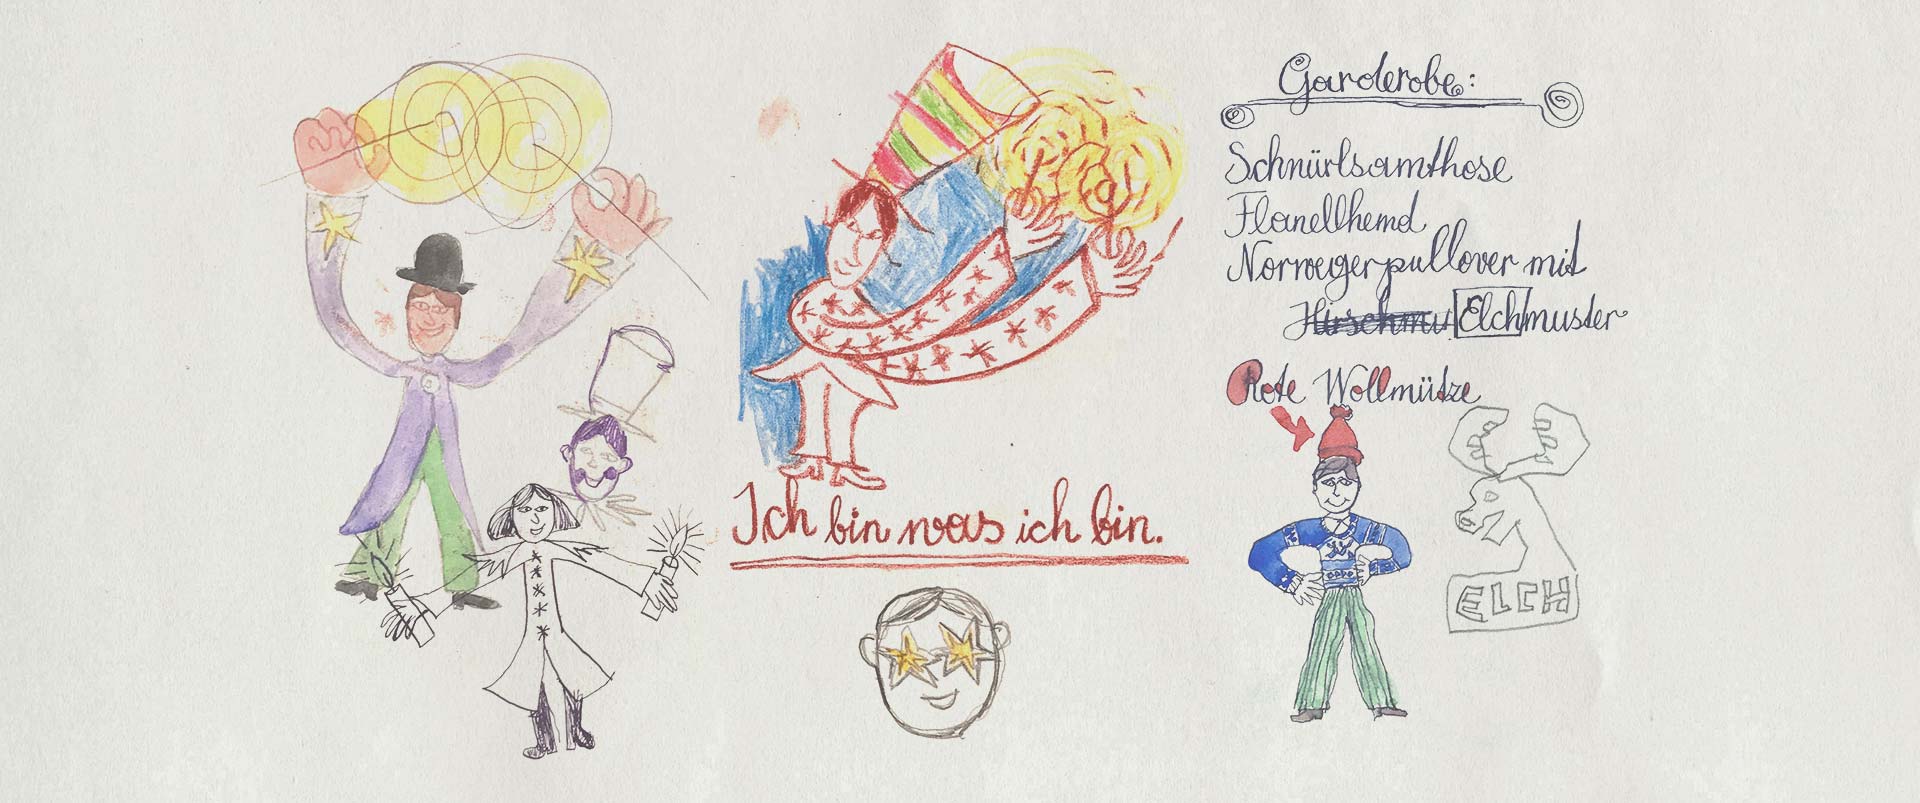 Ich bin was ich bin.
Garderobe:
Schnürlsamthose
Flanellhemd
Norwegerpullover mit
Hirschmu Elchmuster
Rote Wollmütze
ELCH